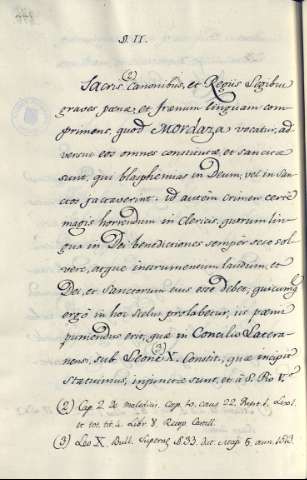 §. II.
(2)
Sacris Canonibus, et Regiis Legibus
graves pœnæ, et frænum linguam com-
primens, quod Mordaza vocatur, ad-
versus eos omnes constitutæ, et sancitæ
sunt, qui blasphemias in Deum, vel in San-
ctos jactaverint: id autem crimen certè
magis horrendum in Clericis, quorum lin-
gua in Dei benedictiones semper se se sol-
vere, atque instrumentum laudium, et
Dei, et Sanctorum eius esse debet; quicumq
ergò in hoc scelus prolabetur, iis pœnis
puniendus erit, quæ in Concilio Latera-
(3)
nensi, sub Leone X. Constit., quæ incipit
statuimus, injunctæ sunt, et à S. Pio V.
(2) Cap. 2. de maledicis. Cap. 10. caus. 22. quæst. 1.
et tot. tit. 4. Libr. 8. Recop. Castell.
(3) Leo X. Bull. Supernæ 5. aun. 1513.